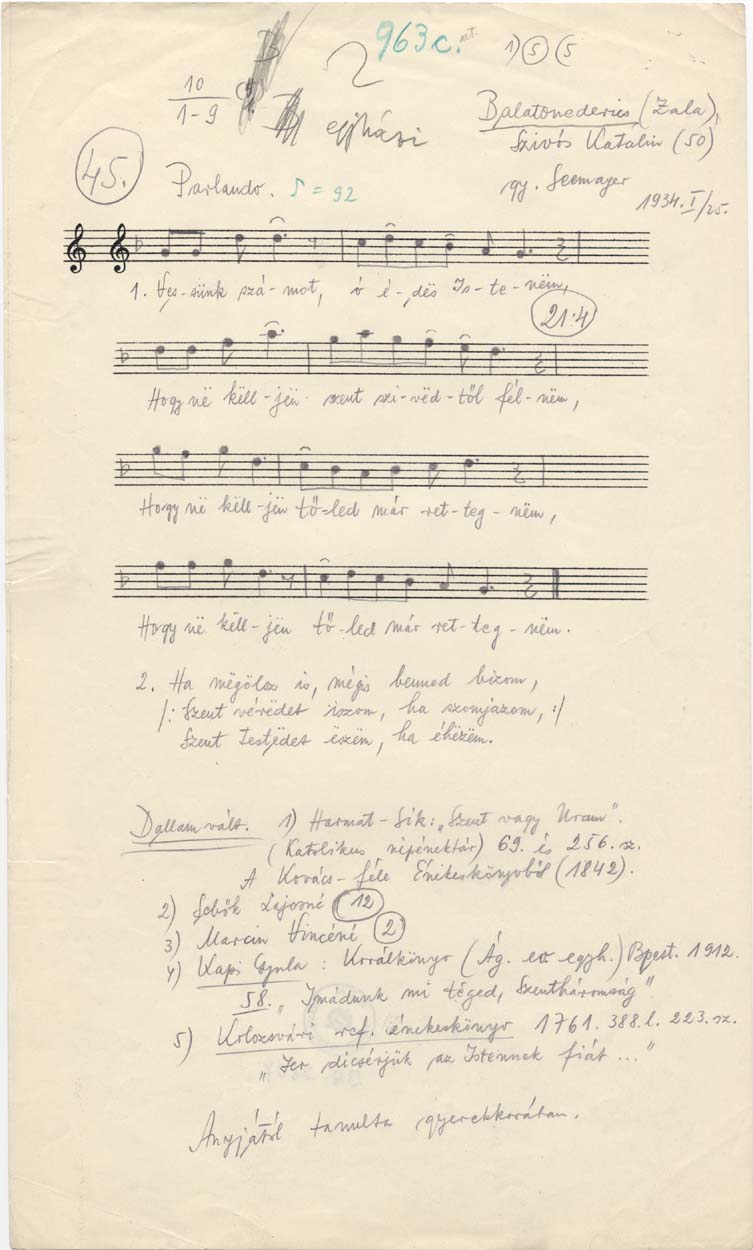 963c.
1) 5 (5
10
1-9
egyházi
Balatonederics (Zala)
Szívós Katalin (50)
45.
Parlando. ♪ = 92
gy. Seemayer
1934. I/25.
1. Ves-sünk szá-mot, ó é-dës Is-te-nëm,
21:4
Hogy në këll-jën szent szi-vëd-től fél-nëm,
Hogy në këll-jën tő-led már ret-teg-nëm,
Hogy në këll-jën tő-led már ret-teg-nëm.
2. Ha mëgölsz is, mégis benned bizom,
/: Szent vérëdet iszom, ha szomjazom, :/
Szent testjëdet ëszëm, ha éhëzëm.
Dallamvált. 1) Harmat-Sík: „Szent vagy Uram".
(Katolikus népénektár) 69. és 256. sz.
A Kovács-féle Énekeskönyvből (1842).
2) Sebők Lajosné 12
3) Marcin Vincéné 2
4) Kapi Gyula: Korálkönyv (Ág. ev egyh.) Bpest. 1912.
58. „Imádunk mi téged, Szentháromság"
5) Kolozsvári ref. énekeskönyv 1761. 388.l. 223. sz.
„Jer dicsérjük az Istennek fiát ..."
Anyjától tanulta gyerekkorában.